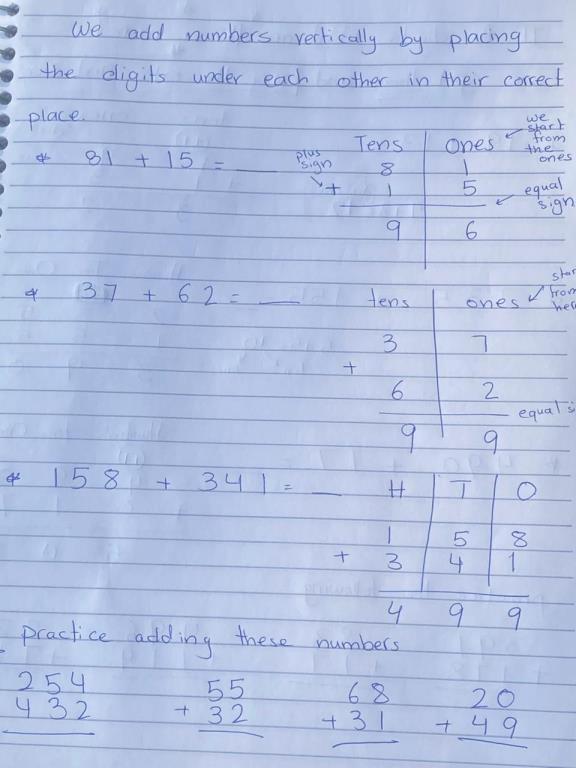 We add numbers vertically by placing
the digits under each other in their correct
place.
* 81 + 15 = __
Tens Ones
we start from the ones
plus sign
8 1
+ 1 5
equal sign
9 6
* 37 + 62 = __
tens ones
start from here
3 7
+
6 2
equal s
9 9
* 158 + 341 = __
H T O
1 5 8
+ 3 4 1
4 9 9
Practice adding these numbers
254 55 68 20
432 + 32 + 31 + 49